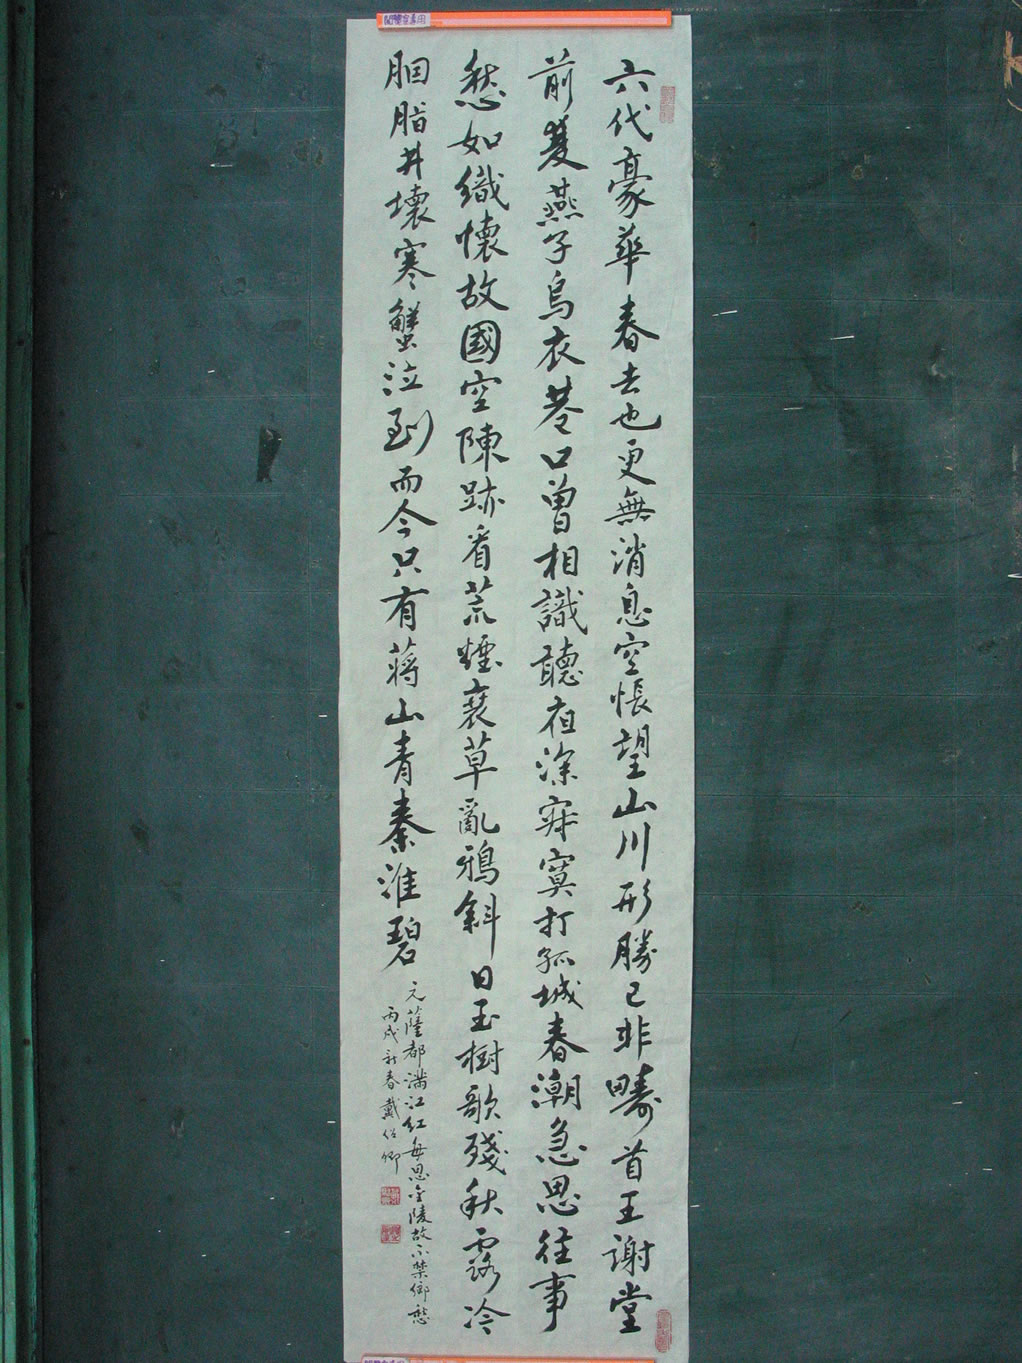 六代豪華春去也更無消息空悵望山川形勝已非疇首王謝堂
前雙燕子烏衣巷口曾相識聽夜深寂寞打孤城春潮急思往事
愁如織懷故國空陳跡看荒煙衰草亂鴉斜日玉樹歌殘秋露冷
胭脂井壞寒螿泣到而今只有蔣山青秦淮碧
元薩都滿江紅每思金陵故不禁鄉愁
丙戌新春戴紹卿